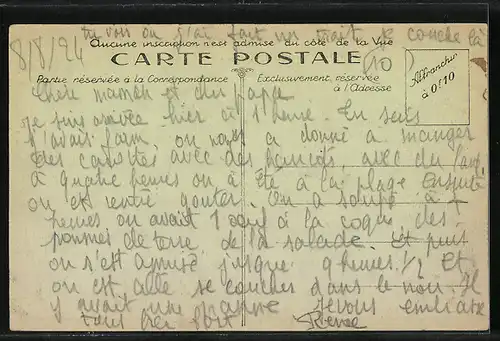 tu vois où j'ai fait un trait je couche là
8/8/24
Aucune inscription n'est admise du côté de la Vue
CARTE POSTALE
Partie réservée à la Correspondance
Exclusivement réservée à l'Adresse
Affranchir à 0f10
Chère maman et cher Papa
je suis arrivée hier à 1 heure. En suis
j'avais faim, on nous a donné a manger
des carottes avec des haricots avec du
à quatre heures on a été à la plage Ensuite
on est rentré gouter. On a soupé à 7
heures on avait 1 œuf à la coque des
pommes de terre de la salade. Et puis
on s'est amusé jusque 9 heures 1/2 Et
on est allé se coucher dans le noir Il
y avait une panne je vous embrasse
tous bien fort Renée